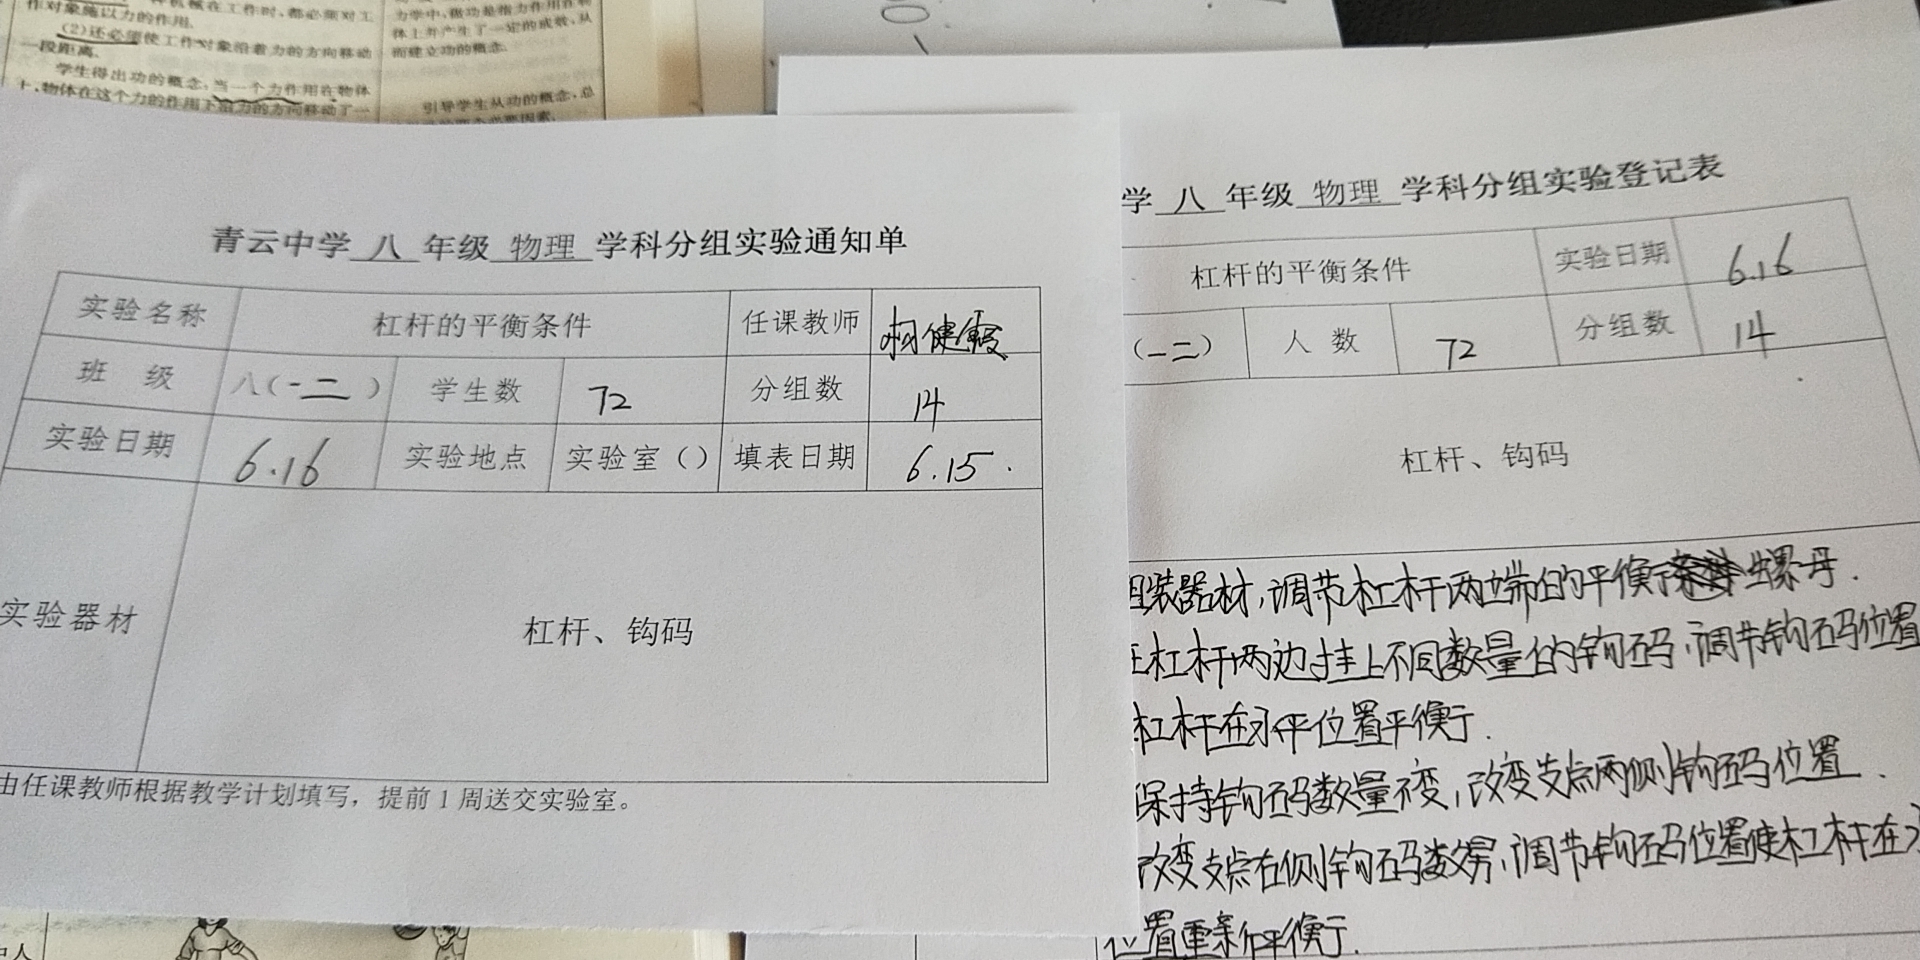 作对象施以力的作用.
(2)还必须使工作对象沿着力的方向移动
一段距离.
学生得出功的概念:当一个力作用在物体
上,物体在这个力的作用下沿力的方向移动了一
力学中,做功是指力作用在
体上并产生了一定的成效,从
而建立功的概念.
引导学生从功的概念,总
青云中学 八 年级 物理 学科分组实验通知单
实验名称 杠杆的平衡条件 任课教师 健霞
班 级 八(一二) 学生数 72 分组数 14
实验日期 6.16 实验地点 实验室() 填表日期 6.15.
实验器材 杠杆、钩码
由任课教师根据教学计划填写，提前1周送交实验室。
学 八 年级 物理 学科分组实验登记表
杠杆的平衡条件 实验日期 6.16
(一二) 人 数 72 分组数 14
杠杆、钩码
组装器材,调节杠杆两端的平衡螺母.
在杠杆两边挂上不同数量的钩码,调节钩码位置
杠杆在水平位置平衡.
保持钩码数量不变,改变支点两侧钩码位置.
改变支点右侧钩码数,调节钩码位置使杠杆在水
位置重新平衡.